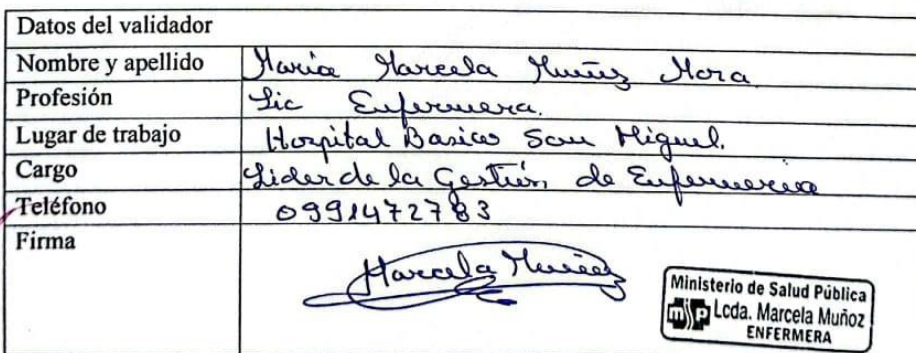 Datos del validador
Nombre y apellido Maria Marcela Muñoz Mora
Profesión Lic Enfermera.
Lugar de trabajo Hospital Basico San Miguel.
Cargo Lider de la Gestión de Enfermeria
Teléfono 0991472783
Firma
Marcela Muñoz
Ministerio de Salud Pública
msp Lcda. Marcela Muñoz
ENFERMERA